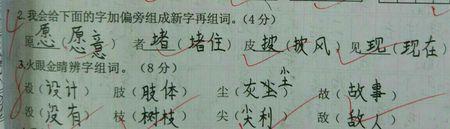 2.我会给下面的字加偏旁组成新字再组词。(4分)
原 愿(愿意) 者 堵(堵住) 皮 披(披风) 见 现(现在)
3.火眼金睛辨字组词。(8分)
设(设计) 肢(肢体) 尘(灰尘) 故(故事)
没(没有) 枝(树枝) 尖(尖利) 敌(敌人)